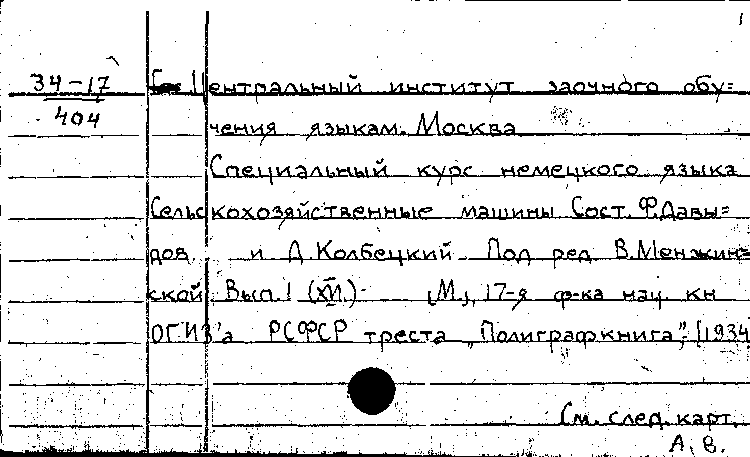 1
34-17
404
Центральный институт заочного обу=
чения языкам. Москва
Специальный курс немецкого языка
Сельскохозяйственные машины Сост. Ф.Давы=
дов и Д.Колбецкий Под ред. В.Менжин=
ской. Вып. I (XVI.)- [М.], 17-я ф-ка нац. кн
ОГИЗ'а РСФСР треста „Полиграфкнига", [1934
См. след. карт.
А. В.